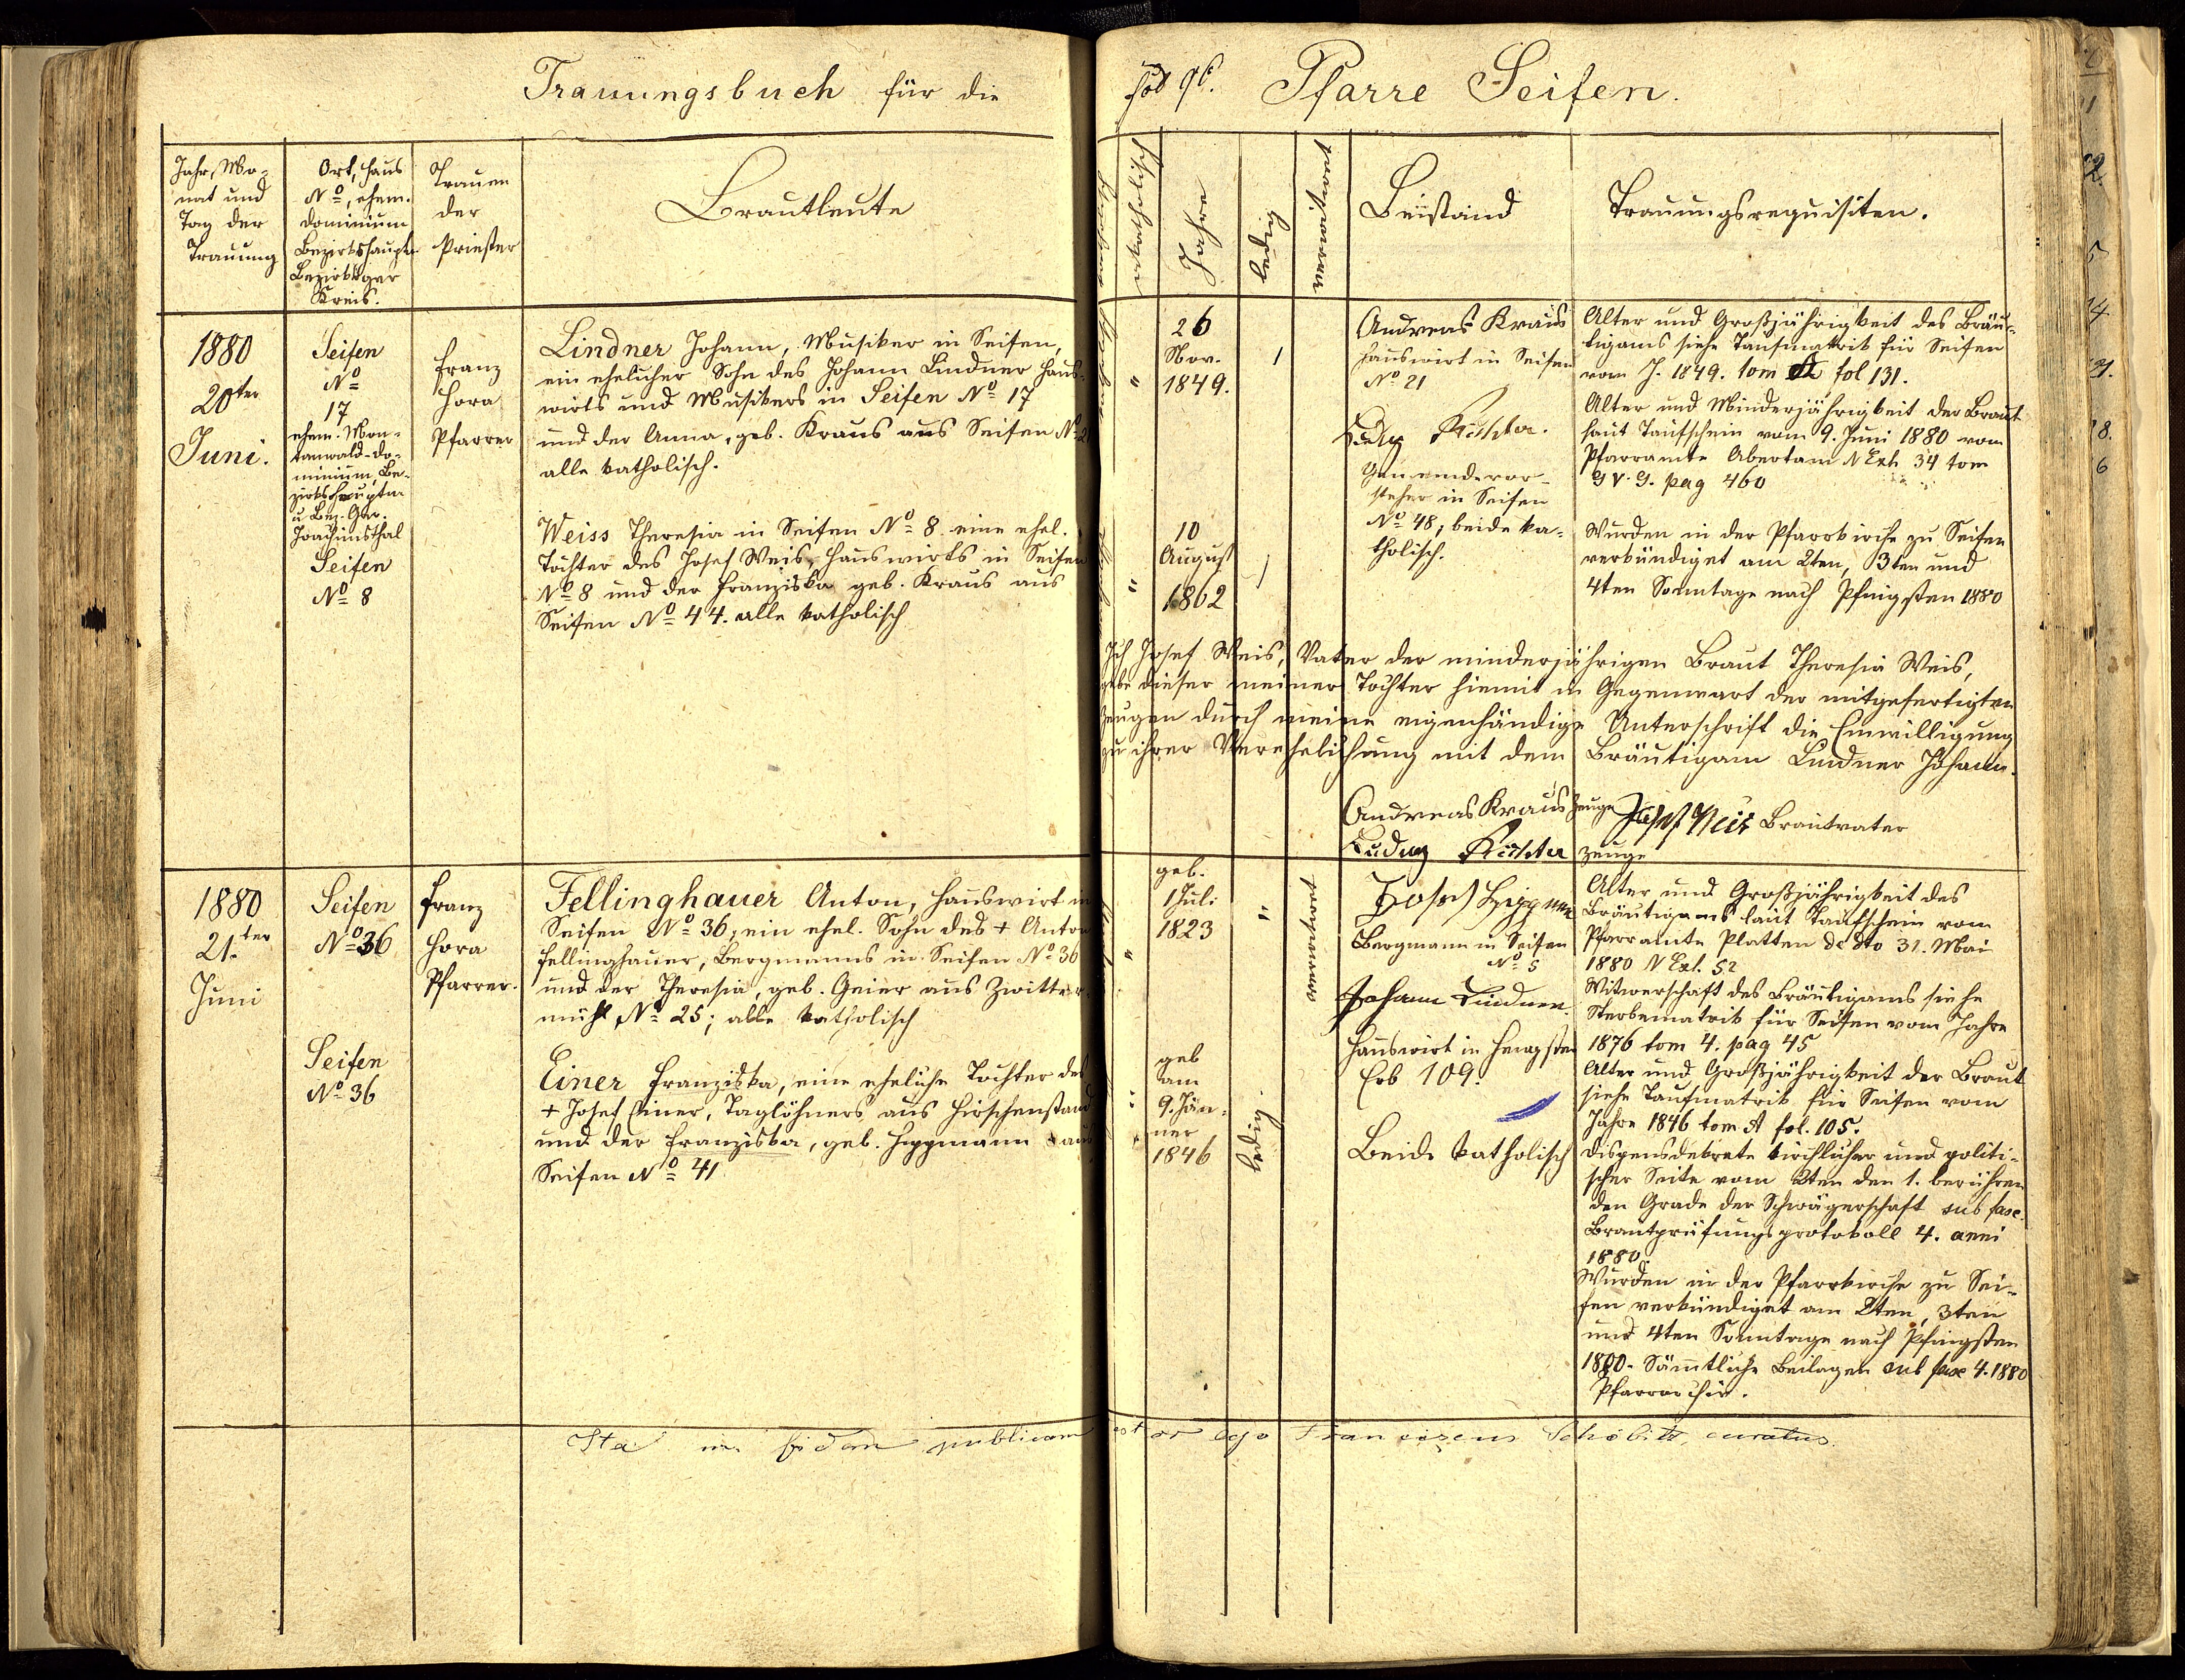 Trauungsbuch für die
Pfarre Seifen.
Jahr, Mo-
nat und
Tag der
Trauung
Ort, Haus
No, ehem.
Dominium
Bezirkshauptm
Bezirksger
Kreis.
Trauen
der
Priester
Brautleute
akatholisch
Jahre
ledig
verwitwet
Beistand
Trauungsrequisiten.
1880
20ten
Juni.
Seifen
No
17
ehem.
minium, Be-
zirkshauptm
u Bez. Ger.
Joachimsthal
Seifen
No 8
Franz
Hora
Pfarrer
Lindner Johann, Musiker in Seifen,
ein ehelicher Sohn des Johann Lindner Haus-
wirts und Musikers in Seifen No 17
und der Anna, geb. Kraus aus Seifen No 21
alle katholisch.
Weiss Theresia in Seifen No 8 eine ehel.
Tochter des Josef Weis, Hauswirts in Seifen
No 8 und der Franziska geb. Kraus aus
Seifen No 44. alle katholisch
"
26
Nov.
1849.
1
"
10
August
1862
1
Andreas Kraus
Hauswirt in Seifen
No 21
Richter.
Gemeindevor-
steher in Seifen
No 48, beide ka-
tholisch.
Alter und Großjährigkeit des Bräu-
tigams siehe Taufmatrik für Seifen
vom J. 1849. tom A fol 131.
Alter und Minderjährigkeit der Braut
laut Taufschein vom 9. Juni 1880 vom
Pfarramte Abertam N Exh 34 tom
pag 460
Wurden in der Pfarrkirche zu Seifen
verkündiget am 2ten, 3ten und
4ten Sonntage nach Pfingsten 1880
Ich Josef Weis, Vater der minderjährigen Braut Theresia Weis,
gebe dieser meiner Tochter hiemit in Gegenwart der mitgefertigten
Zeugen durch meine eigenhändige Unterschrift die Einwilligung
zu ihrer Verehelichung mit dem Bräutigam Lindner Johann.
Andreas Kraus Zeuge Josef Weis Brautvater
Richter Zeuge
1880
21.ten
Juni
Seifen
No 36
Seifen
No 36
Franz
Hora
Pfarrer.
Fellinghauer Anton, Hauswirt in
Seifen No 36, ein ehel. Sohn des + Anton
Fellinghauer, Bergmanns in Seifen No 36
und der Theresia, geb. Geier aus Zwitter-
mühl No 25; alle katholisch
Einer Franziska, eine eheliche Tochter des
+ Josef Einer, Taglöhners aus Hirschenstand
und der Franziska, geb. Hippmann aus
Seifen No 41
"
geb.
1 Juli
1823
"
verwitwet
geb
am
9. Jän-
ner
1846
ledig.
Josef Hippmann
Bergmann in Seifen
No 5
Johann Lindner.
Hauswirt in Hengsten
Erb 109.
Beide katholisch
Alter und Großjährigkeit des
Bräutigams laut Taufschein vom
Pfarramte Platten de dto 31. Mai
1880 N Exh. 52
Witwerschaft des Bräutigams siehe
Sterbematrik für Seifen vom Jahre
1876 tom 4. pag 45
Alter und Großjährigkeit der Braut
siehe Taufmatrik für Seifen vom
Jahre 1846 tom A fol. 105.
Dispensdekrete kirchlicher und politi-
scher Seite vom 2ten den 1. berühren
den Grade der Schwägerschaft sub fasc.
Brautprüfungsprotokoll 4. anni
1880.
Wurden in der Pfarrkirche zu Sei-
fen verkündiget am 2ten, 3ten
und 4ten Sonntage nach Pfingsten
1880. Sämmtliche Beilagen sub fasc 4. 1880
Pfarrarchiv.
Ita in fidem publicam ego Franciscus curatus.